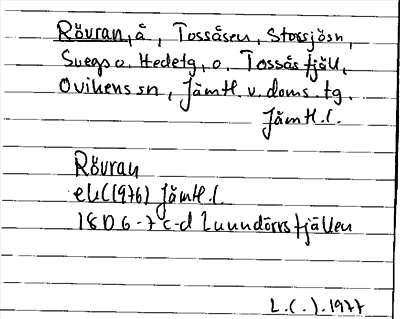 Rövran, å, Tossåsen, Storsjön,
Svegs o. Hedetg, o. Tossåsfjäll,
Ovikens sn, Jämtl. v. doms. tg.
Jämtl.l.
Rövran
ek(1976) Jämtl.l.
18D 6-7c-d Lunndörrsfjällen
L.(.).1977